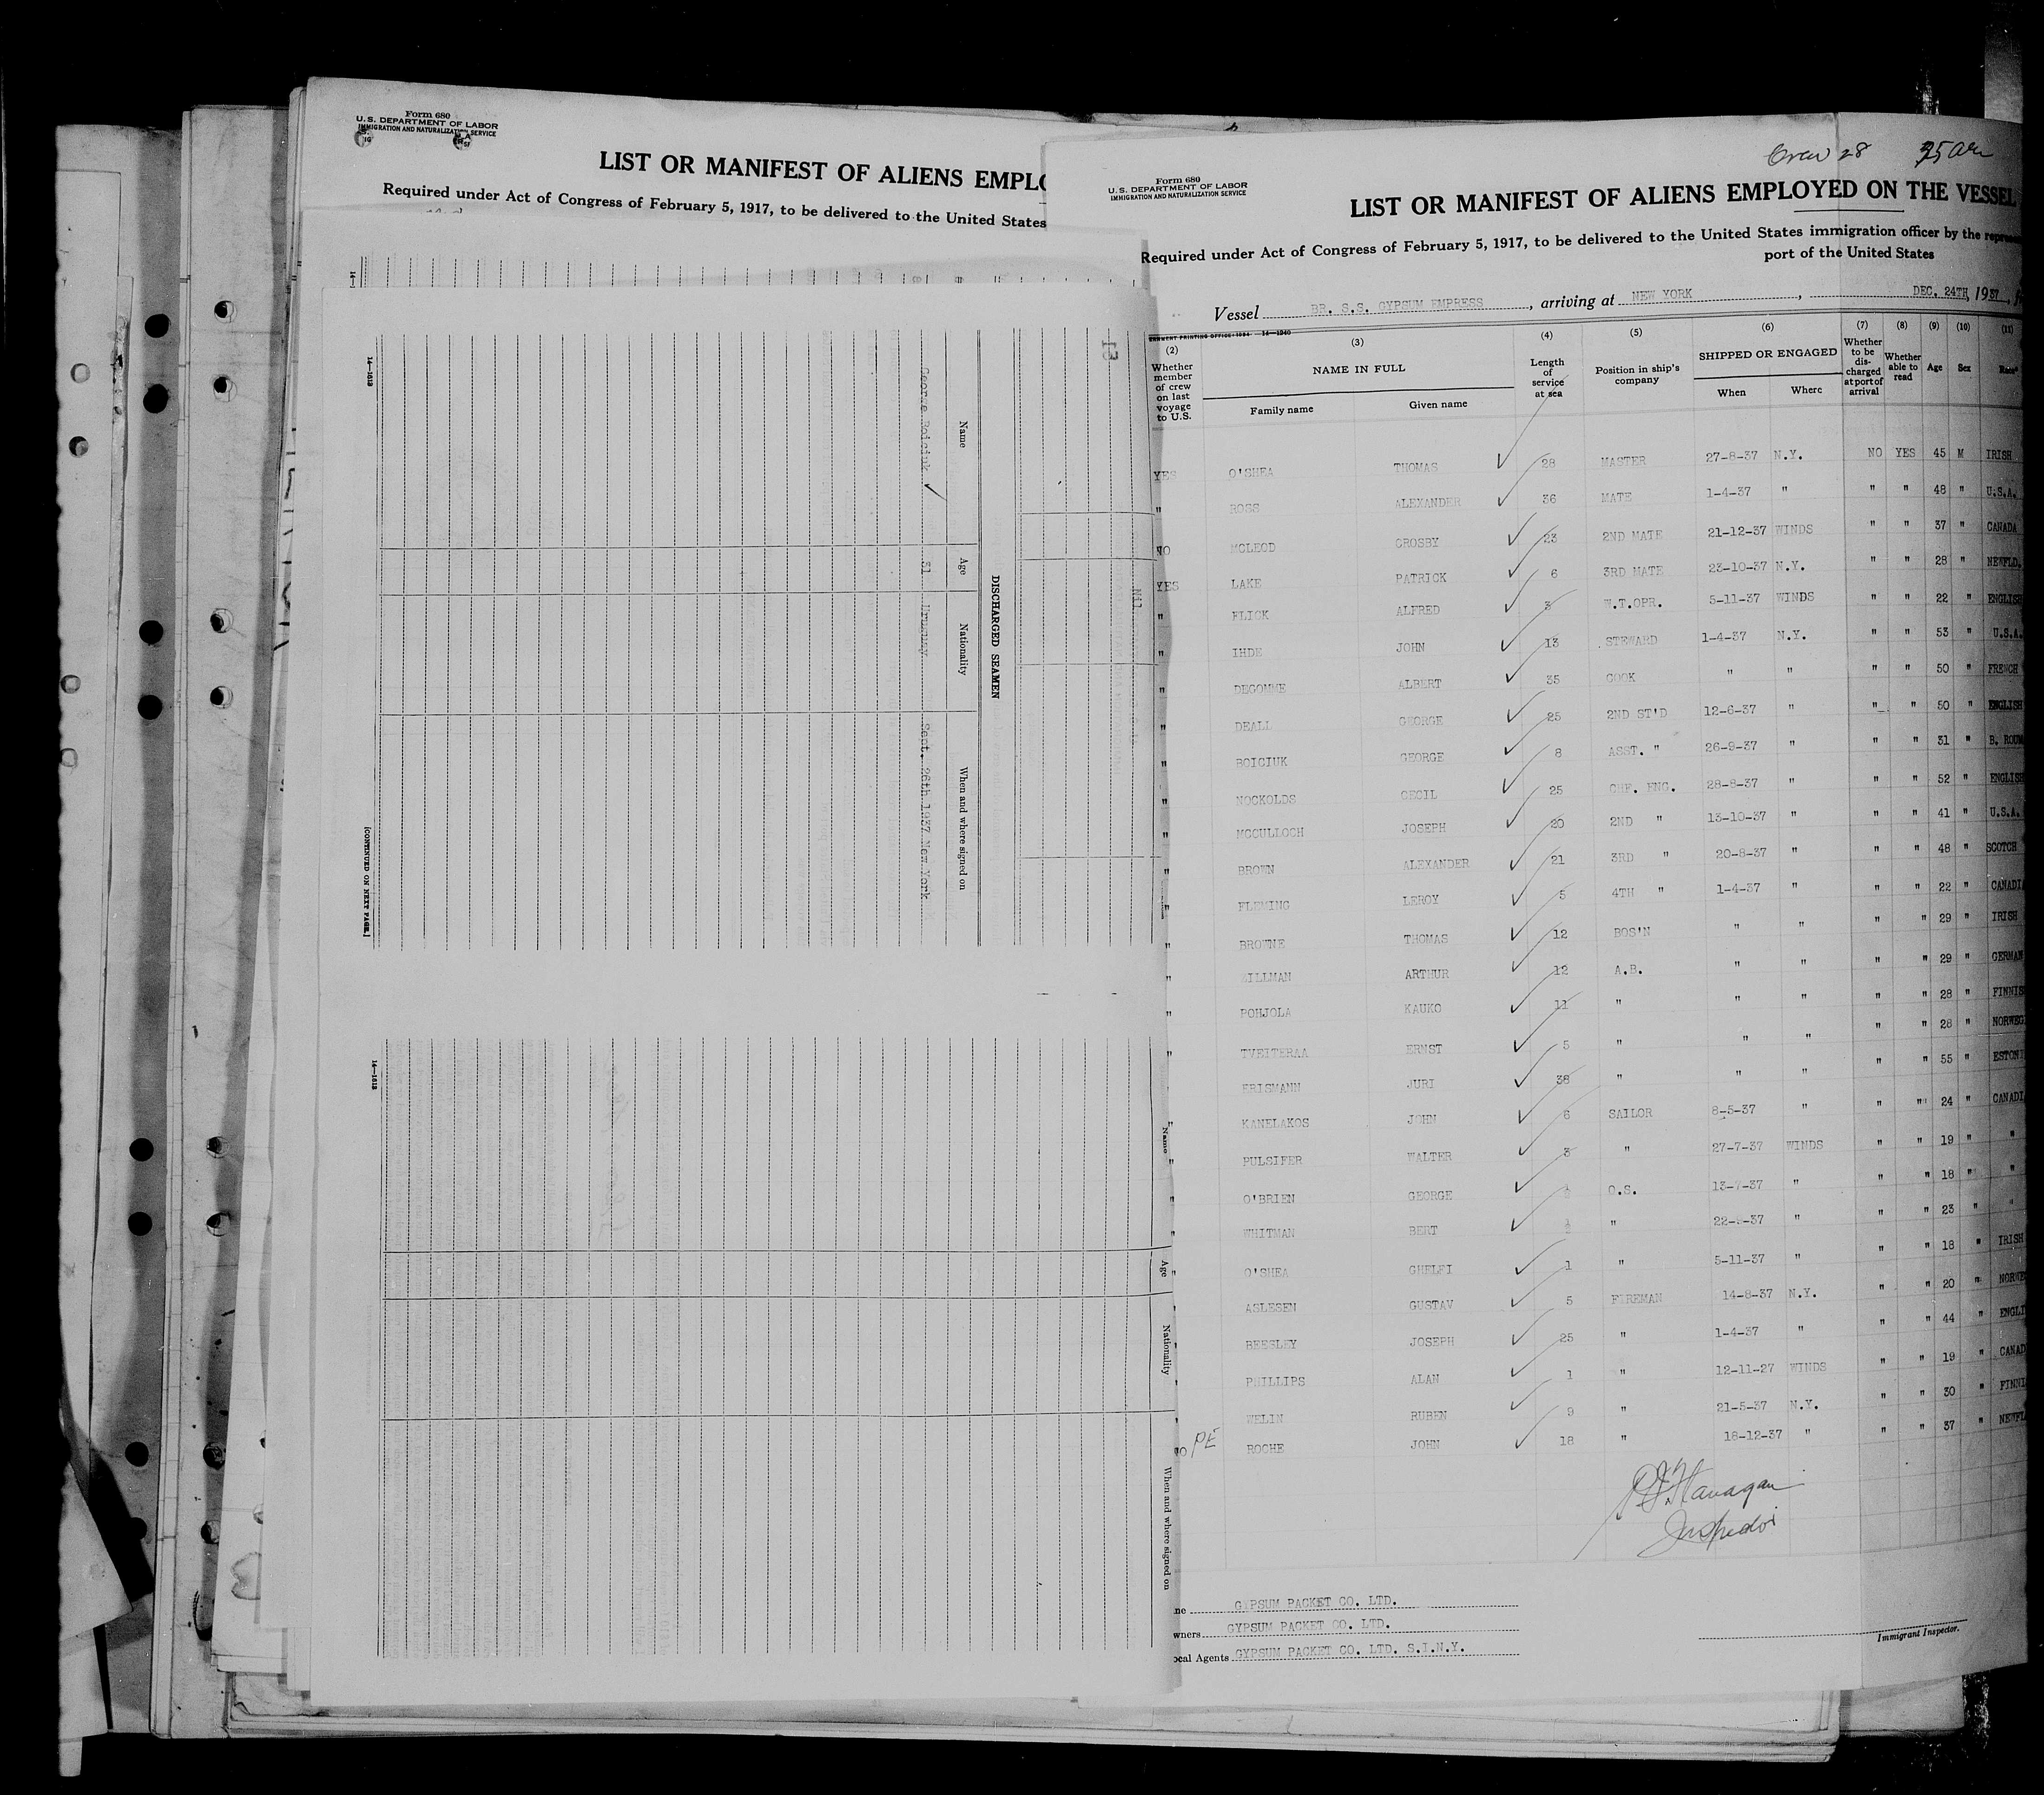 Form 680
U.S. DEPARTMENT OF LABOR
IMMIGRATION AND NATURALIZATION SERVICE
LIST OR MANIFEST OF ALIENS EMPLO
Required under Act of Congress of February 5, 1917, to be delivered to the United States
14—1613
Name
Age
Nationality
When and where signed on
DISCHARGED SEAMEN
George Boiciuk ✓ 31 Uruguay Sept. 26th 1937 New York
Nil
13
[CONTINUED ON NEXT PAGE.]
14—1613
Name
Age
Nationality
When and where signed on
Crew 28
Form 680
U.S. DEPARTMENT OF LABOR
IMMIGRATION AND NATURALIZATION SERVICE
LIST OR MANIFEST OF ALIENS EMPLOYED ON THE VESSEL
Required under Act of Congress of February 5, 1917, to be delivered to the United States immigration officer by the
port of the United States
Vessel BR. S.S. GYPSUM EMPRESS, arriving at NEW YORK, DEC. 24TH, 1937,
14—1240
(2) (3) (4) (5) (6) (7) (8) (9) (10) (11)
Whether member of crew on last voyage to U.S.
NAME IN FULL
Family name Given name
Length of service at sea
Position in ship's company
SHIPPED OR ENGAGED
When Where
Whether to be discharged at port of arrival
Whether able to read
Age
Sex
Race*
YES O'SHEA THOMAS ✓ 28 MASTER 27-8-37 N.Y. NO YES 45 M IRISH
" ROSS ALEXANDER ✓ 36 MATE 1-4-37 " " " 48 " U.S.A.
NO MCLEOD CROSBY ✓ 23 2ND MATE 21-12-37 WINDS " " 37 " CANADA
YES LAKE PATRICK ✓ 6 3RD MATE 23-10-37 N.Y. " " 28 " NEWFLD.
" FLICK ALFRED ✓ 3 W.T.OPR. 5-11-37 WINDS " " 22 " ENGLISH
" IHDE JOHN ✓ 13 STEWARD 1-4-37 N.Y. " " 53 " U.S.A.
" DEGOMME ALBERT ✓ 35 COOK " " " " 50 " FRENCH
" DEALL GEORGE ✓ 25 2ND ST'D 12-6-37 " " " 50 " ENGLISH
" BOICIUK GEORGE ✓ 8 ASST. " 26-9-37 " " " 31 " B. ROUM
" NOCKOLDS CECIL ✓ 25 CHF. ENG. 28-8-37 " " " 52 " ENGLISH
" MCCULLOCH JOSEPH ✓ 20 2ND " 13-10-37 " " " 41 " U.S.A.
" BROWN ALEXANDER ✓ 21 3RD " 20-8-37 " " " 48 " SCOTCH
" FLEMING LEROY ✓ 5 4TH " 1-4-37 " " " 22 " CANADI
" BROWNE THOMAS ✓ 12 BOS'N " " " " 29 " IRISH
" ZILLMAN ARTHUR ✓ 12 A.B. " " " " 29 " GERMAN
" POHJOLA KAUKO ✓ 11 " " " " " 28 " FINNIS
" TVEITERAA ERNST ✓ 5 " " " " " 28 " NORWEG
" ERISMANN JURI ✓ 38 " " " " " 55 " ESTONI
" KANELAKOS JOHN ✓ 6 SAILOR 8-5-37 " " " 24 " CANADI
" PULSIFER WALTER ✓ 3 " 27-7-37 WINDS " " 19 " "
" O'BRIEN GEORGE ✓ O.S. 13-7-37 " " " 18 " "
" WHITMAN BERT ✓ " " " " 23 " "
" O'SHEA GHELFI ✓ 1 " 5-11-37 " " " 18 " IRISH
" ASLESEN GUSTAV ✓ 5 FIREMAN 14-8-37 N.Y. " " 20 " NORWE
" BEESLEY JOSEPH ✓ 25 " 1-4-37 " " " 44 " ENGLI
" PHILLIPS ALAN ✓ 1 " 12-11-27 WINDS " " 19 " CANAD
" WELIN RUBEN ✓ 9 " 21-5-37 N.Y. " " 30 " FINNI
NO PE ROCHE JOHN ✓ 18 " 18-12-37 " " " 37 " NEWFL
Flanagan
Inspector
ne GYPSUM PACKET CO. LTD.
wners GYPSUM PACKET CO. LTD.
ocal Agents GYPSUM PACKET CO. LTD. S.I.N.Y.
Immigrant Inspector.